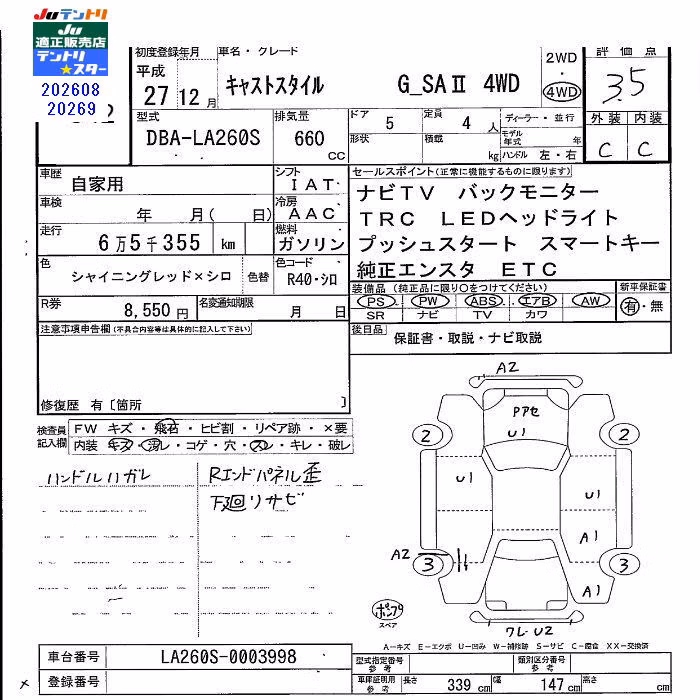 Juテントリ
Ju
適正販売店
テントリ
★スター
202608
20269
初度登録年月
車名・グレード
平成
27 12 月
キャストスタイル G_SAⅡ 4WD
2WD
・
4WD
評価点
3.5
外装 内装
C C
型式
DBA-LA260S
排気量
660
CC
ドア 5
形状
定員 4 人
積載 kg
ディーラー・並行
モデル年式 年
ハンドル 左・右
車歴
自家用
シフト
IAT
車検
年 月( 日)
冷房
AAC
走行
6万5千355 km
燃料
ガソリン
色
シャイニングレッド×シロ
色替
色コード
R40・シロ
R券
8,550円
名変通知期限
月 日
セールスポイント(正常に機能するものに限ります)
ナビTV バックモニター
TRC LEDヘッドライト
プッシュスタート スマートキー
純正エンスタ ETC
装備品(純正品に限り○をつけてください)
新車保証書
PS PW ABS エアB AW
SR ナビ TV カワ
有・無
後日品
保証書・取説・ナビ取説
注意事項申告欄(不具合内容等は具体的に記入して下さい)
修復歴 有〔箇所 〕
検査員
記入欄
FW キズ・飛石・ヒビ割・リペア跡・×要
内装 キズ・汚レ・コゲ・穴・スレ・キレ・破レ
ハンドルハガレ
Rエンドパネル歪
下廻リサビ
A2
Pアセ
U1
2 2
U1 U1
A1
A2
3 3
A1
ポンプ
スペア
ワレ・U2
A-キズ E-エクボ U-凹み W-補修跡 S-サビ C-腐食 XX-交換済
車台番号
LA260S-0003998
登録番号
型式指定番号
参考
類別区分番号
参考
車庫証明用
参考
長さ 339 cm
幅 147 cm
高さ cm